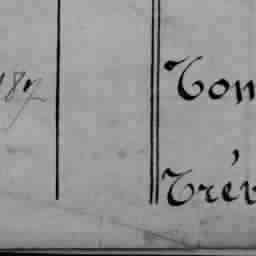 187
Ton
Trév